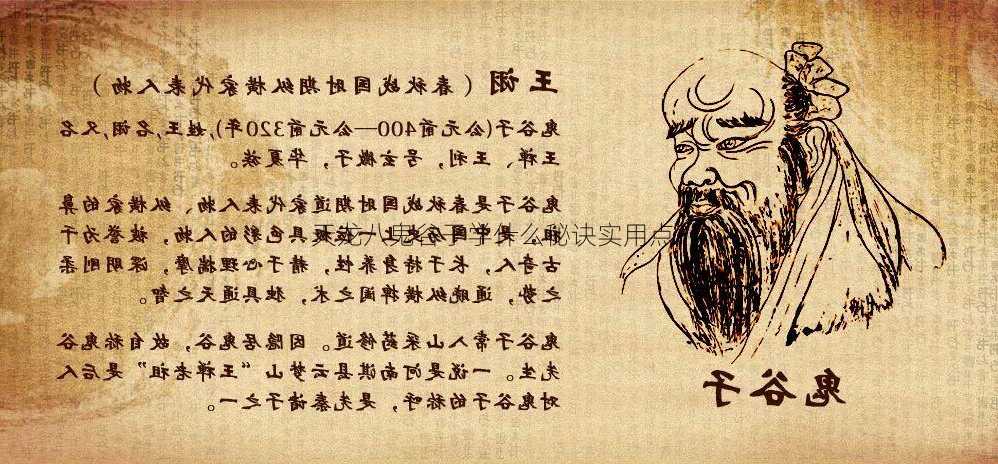 王诩（春秋战国时期纵横家代表人物）
鬼谷子(公元前400—公元前320年),姓王,名诩,又名
王禅、王利，号玄微子，华夏族。
鬼谷子是春秋战国时期道家代表人物、纵横家的鼻
祖，是中国历史上一位极具色彩的人物，被誉为千
古奇人，长于持身养性，精于心理揣摩，深明刚柔
之势，通晓纵横捭阖之术，独具通天之智。
鬼谷子常入山采药修道。因隐居鬼谷，故自称鬼谷
先生。一说是河南淇县云梦山“王禅老祖”是后人
对鬼谷子的称呼，是先秦诸子之一。
鬼谷子
天龙八鬼谷子学什么秘诀实用点